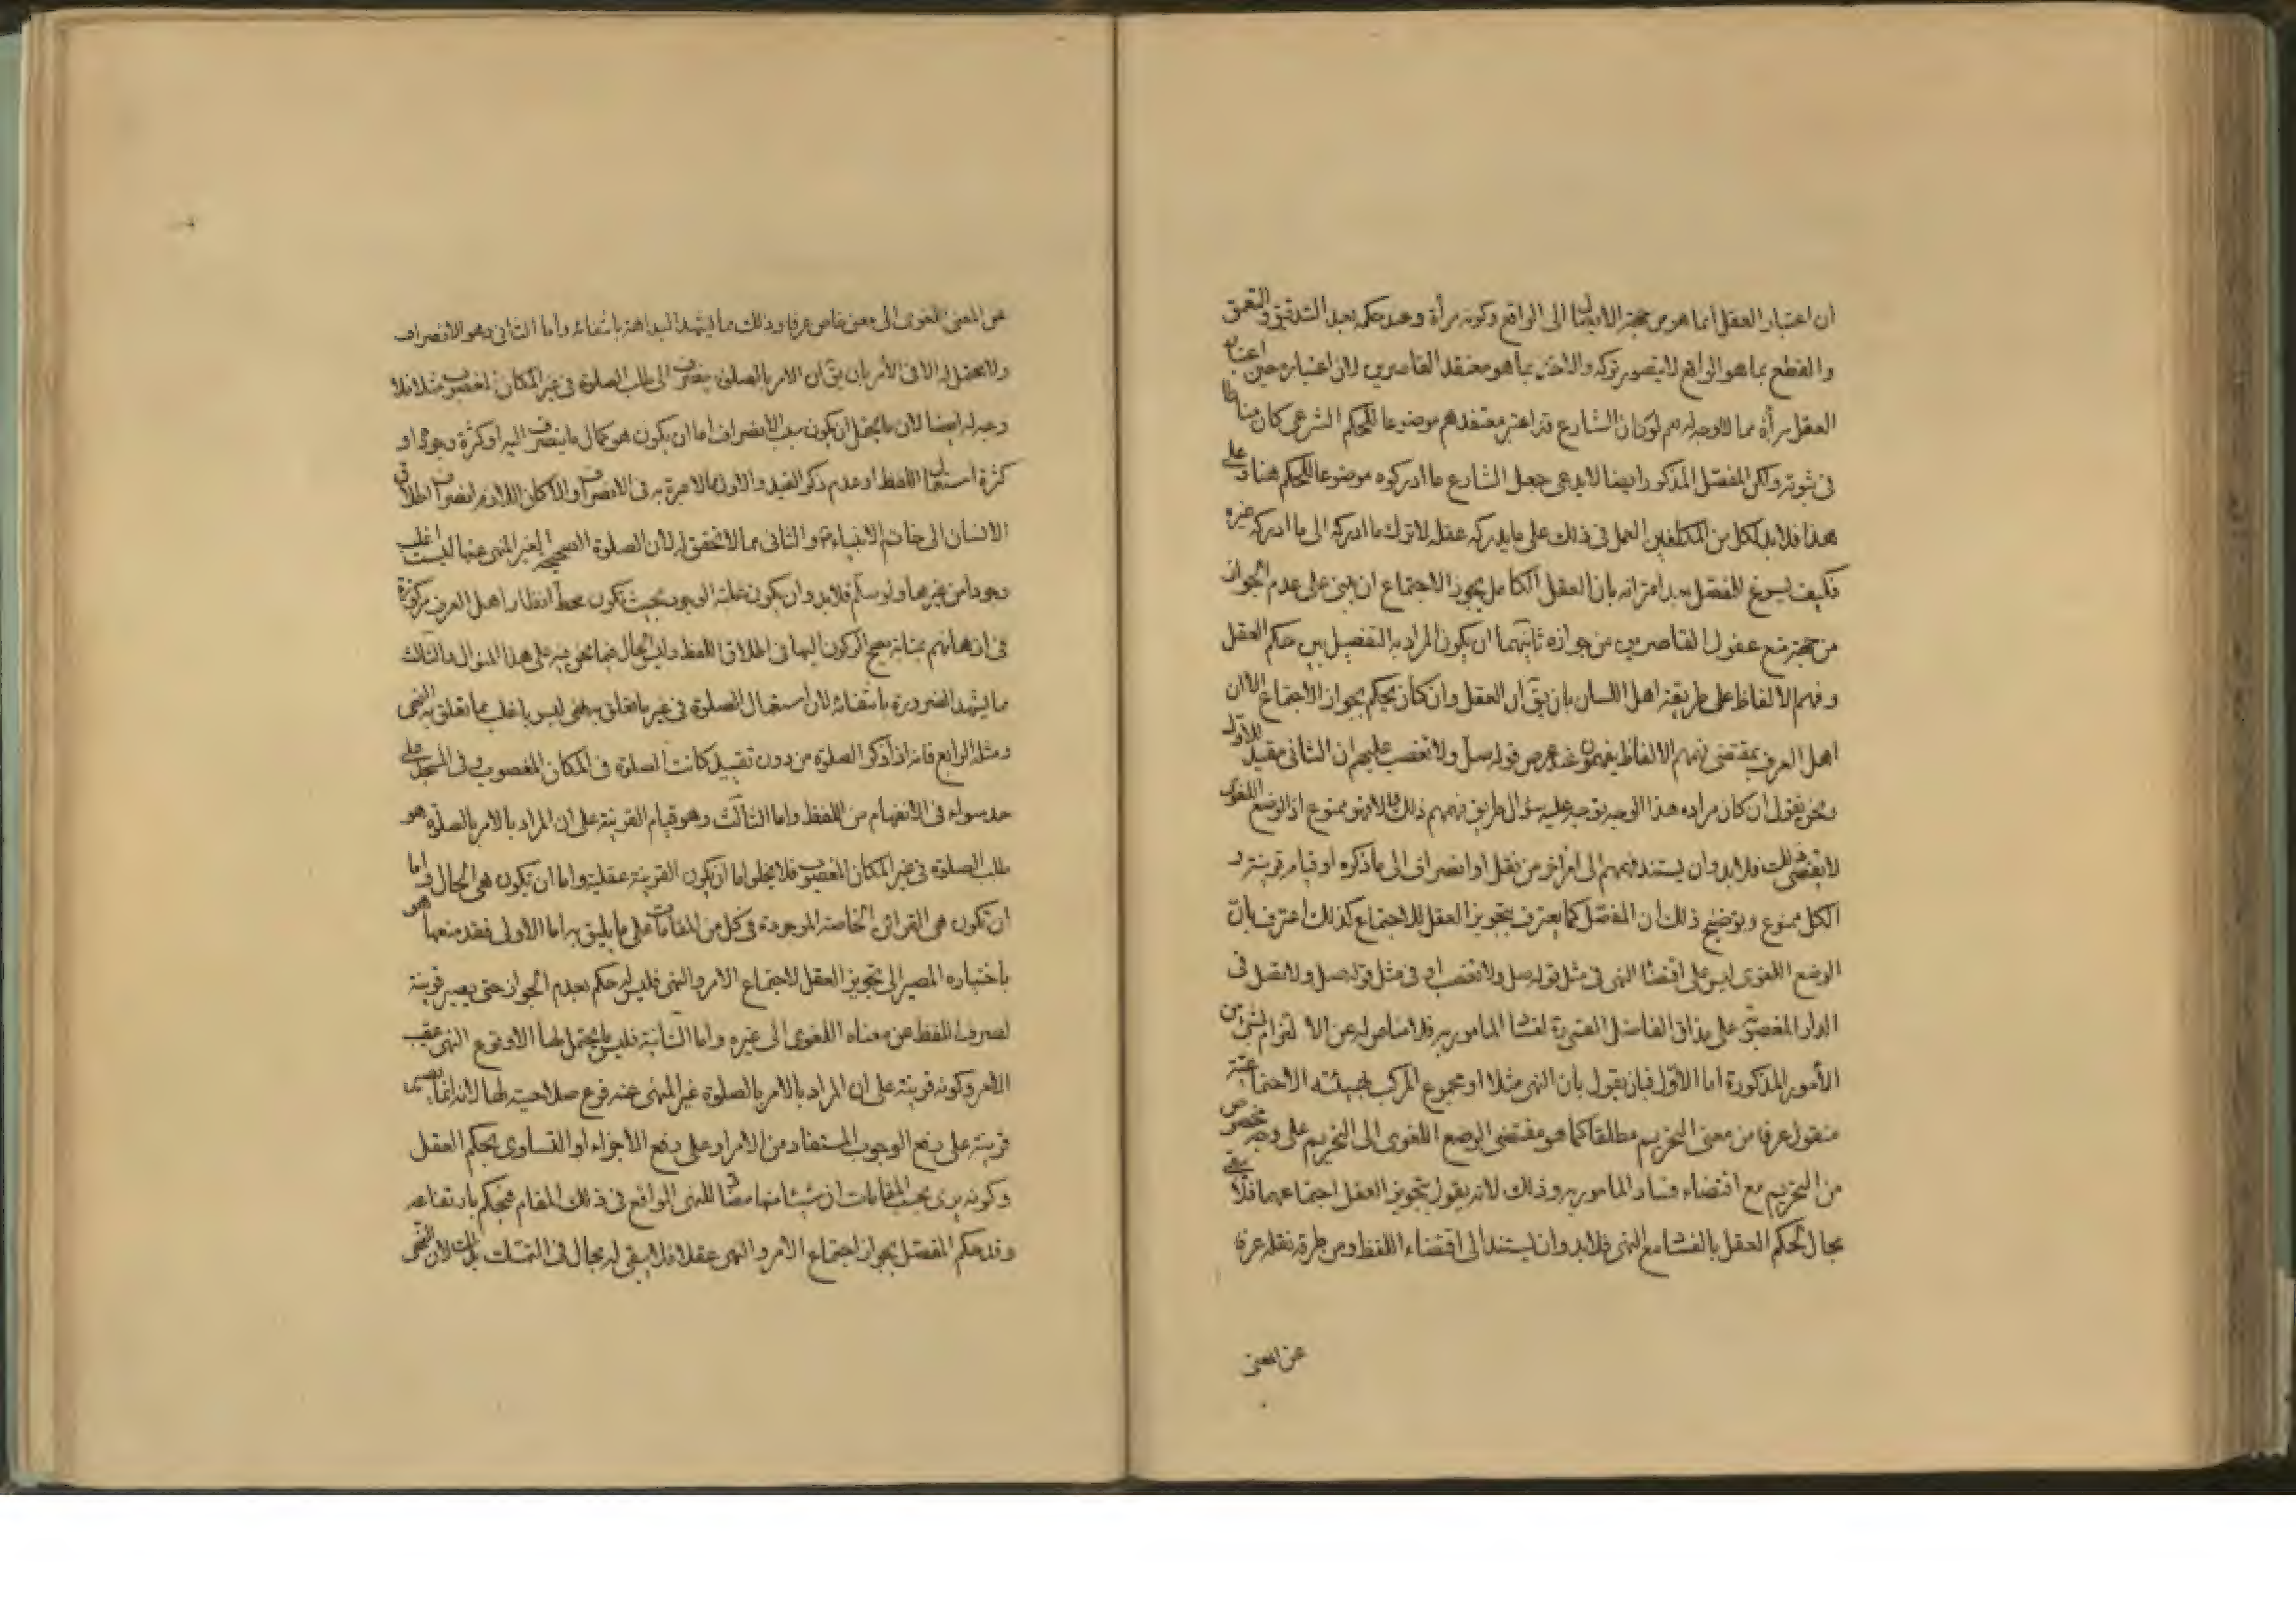 ان اعتبار العقل انما هو من جهة الايصال الى الواقع وكونه مرأة وعند حكمه بعد التدقيق والتعمق
والقطع بما هو الواقع لا يتصور تركه والاخذ بما هو معتقد القاصرين لان اعتباره حين اعتباره
العقل مرأة مما لا وجه له نعم لو كان الشارع قد اعتبر معتقدهم موضوعا للحكم الشرعى كان مناطا
فى ثبوته ولكن المفصل المذكور ايضا لا يدعى جعل الشارع ما ادركوه موضوعا للحكم هنا وعلى
هذا فلا بد لكل من المكلفين العمل فى ذلك على ما يدركه عقله لا ترك ما ادركه الى ما ادركه غيره
فكيف يسوغ للمفصل بعد اعترافه بان العقل الكامل يجوز الاجتماع ان يبنى على عدم الجواز
من جهة منع عقول القاصرين من جوازه ثانيهما ان يكون المراد به التفصيل بين حكم العقل
وفهم الالفاظ على طريقة اهل اللسان بان يق ان العقل وان كان يحكم بجواز الاجتماع الا ان
اهل العرف بمقتضى فهم الالفاظ يفهمون عند عرض قوله صل ولا تغصب عليهم ان الثانى مقيد للاول
ونحن نقول ان كان مراده هذا الوجه يتوجه عليه سؤال طريق فهمهم ذلك فهو ممنوع اذ الوضع اللغوى
لا يقتضى ذلك فلا بد وان يستند فهمهم الى امر اخر من نقل او انصراف الى ما ذكره او قيام قرينة و
الكل ممنوع وتوضيح ذلك ان المفصل كما يعترف بتجويز العقل للاجتماع كذلك اعترف بان
الوضع اللغوى ليس على اقتضاء النهى فى مثل قوله صل ولا تغصب او فى مثل قوله صل ولا تصل فى
الدار المغصوبة على مذاق الفاضل القمى ره لفساد المامور به فلا مناص له عن الالتزام بشئ من
الأمور المذكورة اما الأول فبان يقول بان النهى مثلا او مجموع المركب بهيئته الاجتماعية
منقول عرفا من معنى التحريم مطلقا كما هو مقتضى الوضع اللغوى الى التحريم على وجه مخصوص
من التحريم مع اقتضاء فساد المامور به وذلك لانه يقول بتجويز العقل اجتماعهما فلا يبقى
مجال لحكم العقل بالفساد مع النهى فلا بد وان يستند الى اقتضاء اللفظ ومن طرقه نقله عرفا
عن المعنى
عن المعنى اللغوى الى معنى خاص عرفا وذلك مما يشهد البداهة بانتفائه واما الثانى وهو الانصراف
ولا محتمل له الا فى الأمر بان يق ان الامر بالصلوة ينصرف الى طلب الصلوة فى غير المكان المغصوب مثلا فلا
وجه له ايضا لان ما يحتمل ان يكون سبب الانصراف اما ان يكون هو كمال ما ينصرف اليه او كثرة وجوده او
كثرة استعمال اللفظ او عدم ذكر القيد والاول مما لا عبرة به فى الانصراف والا لكان اللازم انصراف اطلاق
الانسان الى خاتم الانبياء ص والثانى مما لا تحقق له لأن الصلوة الصحيحة لغير المنهى عنها ليست اغلب
وجودا من غيرها ولو سلم فلا بد وان يكون غلبة الوجود بحيث تكون محط انظار اهل العرف مركوزة
فى اذهانهم بمثابة يصح الركون اليها فى اطلاق اللفظ وليس الحال فيما نحن فيه على هذا المنوال والثالث
مما يشهد الضرورة بانتفائه لأن استعمال الصلوة فى غير ما تعلق به نهى ليس باغلب مما تعلق به النهى
ومثله الرابع فانه اذا ذكر الصلوة من دون تقييد كانت الصلوة فى المكان المغصوب وفى المسجد على
حد سواء فى الانفهام من اللفظ واما الثالث وهو قيام القرينة على ان المراد بالامر بالصلوة هو
طلب الصلوة فى غير المكان المغصوب فلا يخلو اما ان يكون القرينة عقلية واما ان تكون هى الحال واما
ان تكون هى القرائن الخاصة الموجودة فى كل من المقامات على ما يليق به اما الأولى فقد منعها هو
باختياره المصير الى تجويز العقل لاجتماع الامر والنهى فليس له حكم بعدم الجواز حتى يصير قرينة
لصرف اللفظ عن معناه اللغوى الى غيره واما الثانية فليس ما يحتمل لها الا وقوع النهى عقيب
الامر وكونه قرينة على ان المراد بالامر بالصلوة غير المنهى عنه فرع صلاحيته لها لانه انما يصير
قرينة على رفع الوجوب المستفاد من الامر او على رفع الأجزاء او التساوى بحكم العقل
وكونه يرى بحسب المقامات ان شيئا منها مضاد للنهى الواقع فى ذلك المقام فيحكم بارتفاعه
وقد حكم المفصل بجواز اجتماع الامر والنهى عقلا فلا يبقى له مجال فى التمسك بذلك لان النهى